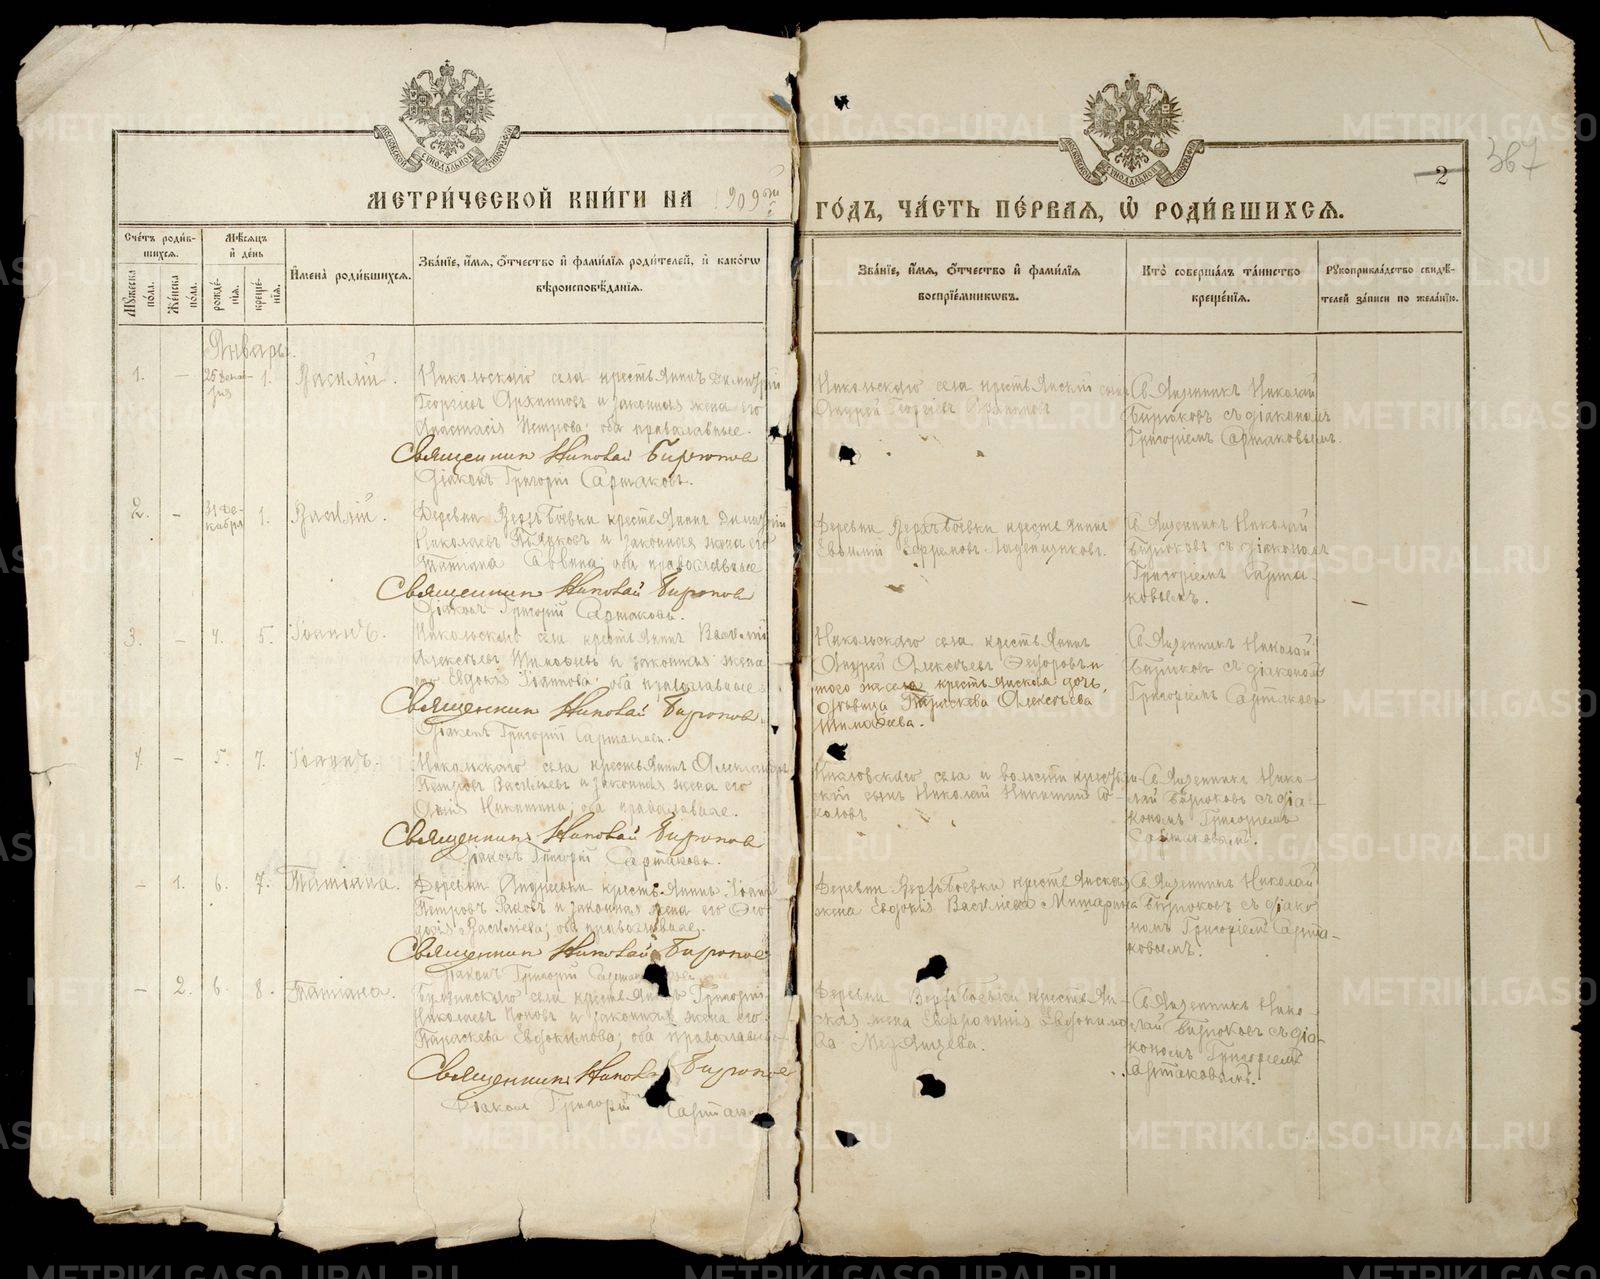 МЕТРИ́ЧЕСКОЙ КНИ́ГИ НА 1909ый
ГО́ДЪ, ЧА́СТЬ ПЕ́РВАЯ, Ѡ҆ РОДИ́ВШИХСЯ.
2
367
Сче́тъ роди́вшихся.
Мѣ́сяцъ и҆ де́нь
И҆мена̀ роди́вшихся.
Зва́нїе, и҆́мя, ѻ҆́тчество и҆ фами́лїя роди́телей, и҆ како́гѡ вѣроисповѣ́данїя.
Му́жеска по́ла.
Же́нска по́ла.
рожде́нїя.
креще́нїя.
Зва́нїе, и҆́мя, ѻ҆́тчество и҆ фами́лїя воспрїе́мникѡвъ.
Кто̀ соверша́лъ та́инство креще́нїя.
Рꙋкоприкла́дство свидѣ́телей за́писи по жела́нїю.
Январь.
1. – 25 дека- 1. Василий.
Никольскаго села крестьянинъ Димитрий
Георгиевъ Архиповъ и законная жена его
Анастасія Петрова; оба православные.
Священник Николай Бирюков
Діаконъ Григорій Сартаковъ.
Никольскаго села крестьянский сынъ
Андрей Георгіевъ Архиповъ
Священникъ Николай
Бирюковъ съ діакономъ
Григоріемъ Сартаковымъ.
2. – 31 де-кабря 1. Василій.
Деревни Верхъ Боевки крестьянинъ Димитрій
Николаевъ и законная жена его
Татиана Саввина; оба православные
Священник Николай Бирюков
Діаконъ Григорій Сартаковъ.
Деревни Верхъ Боевки крестьянинъ
Евфимій Ефремовъ Ладейщиковъ.
Священникъ Николай
Бирюковъ съ діакономъ
Григоріемъ Сарта-
ковымъ.
3. – 4. 5. Іоаннъ.
Никольскаго села крестьянинъ Василій
Алексѣевъ Тимофѣевъ и законная жена
его Евдокія Іоаннова; оба православные
Священник Николай Бирюков.
Діаконъ Григорій Сартаковъ.
Никольскаго села крестьянинъ
Андрей Алексѣевъ Федоровъ и
того же села крестьянская дочь,
дѣвица Параскева Алексѣева
Тимофѣева.
Священникъ Николай
Бирюковъ съ діакономъ
Григоріемъ Сартаков
4. – 5. 7. Іоаннъ.
Никольскаго села крестьянинъ Александръ
Петровъ Васильевъ и законная жена его
Никитина; оба православные.
Священник Николай Бирюков
Діаконъ Григорій Сартаковъ.
села и волости крестьян-
ский сынъ Николай Никитинъ Со-
коловъ
Священникъ Нико-
лай Бирюковъ съ діа-
кономъ Григоріемъ
Сартаковымъ.
– 1. 6. 7. Татіана.
Деревни крестьянинъ Іоаннъ
Петровъ Раковъ и законная жена его
Васильева; оба православные.
Священник Николай Бирюков
Діаконъ Григорій Сартаковъ
Деревни Верхъ Боевки крестьянская
жена Евдокія Васильева
Священникъ Николай
Бирюковъ съ діако-
номъ Григоріемъ Сарта-
ковымъ.
– 2. 6. 8. Татіана.
села крестьянинъ Григорій
Николаевъ Поповъ и законная жена его
Параскева Евдокимова; оба православные
Священник Николай Бирюков
Діаконъ Григорій Сартаков
Деревни Верхъ Боевки крестьян-
ская жена Евфросинія Евдокимо-
ва
Священникъ Нико-
лай Бирюковъ съ діа-
кономъ Григоріемъ
Сартаковымъ.
METRIKI.GASO-URAL.RU